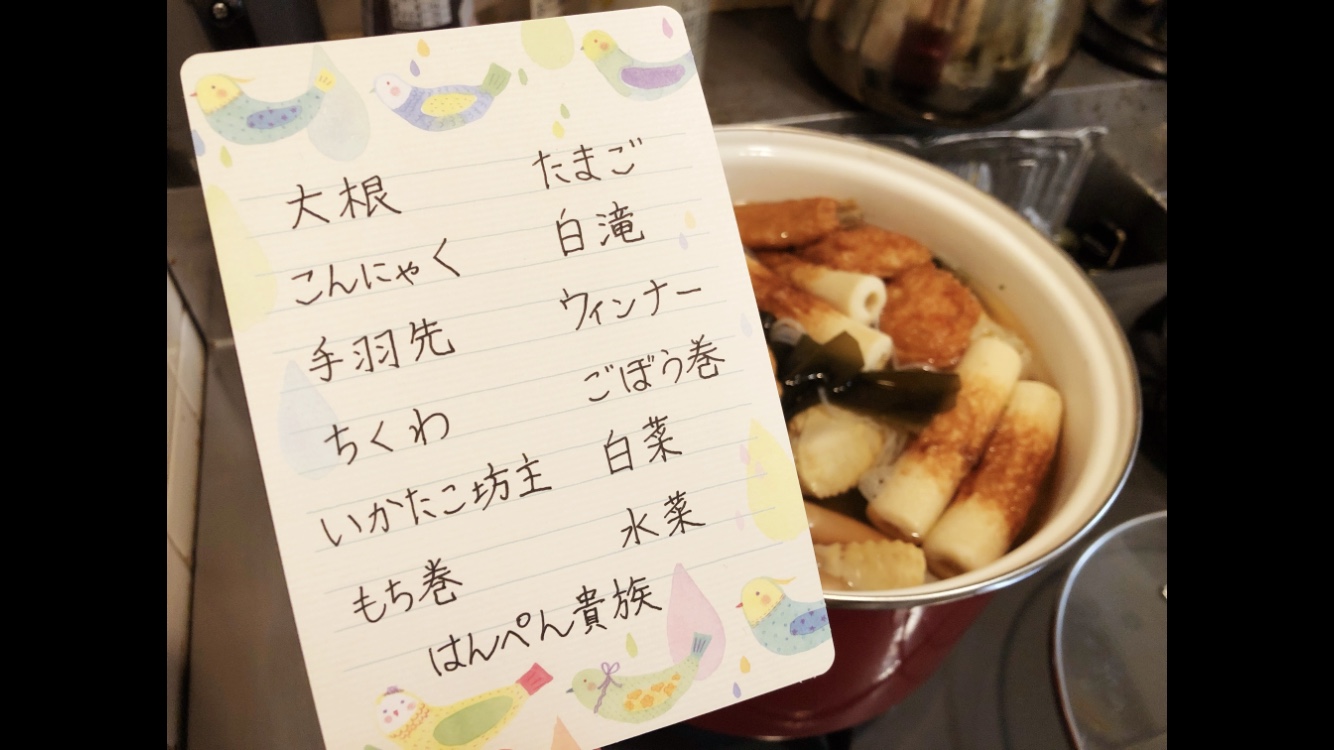 大根
こんにゃく
手羽先
ちくわ
いかたこ坊主
もち巻
たまご
白滝
ウィンナー
ごぼう巻
白菜
水菜
はんぺん貴族